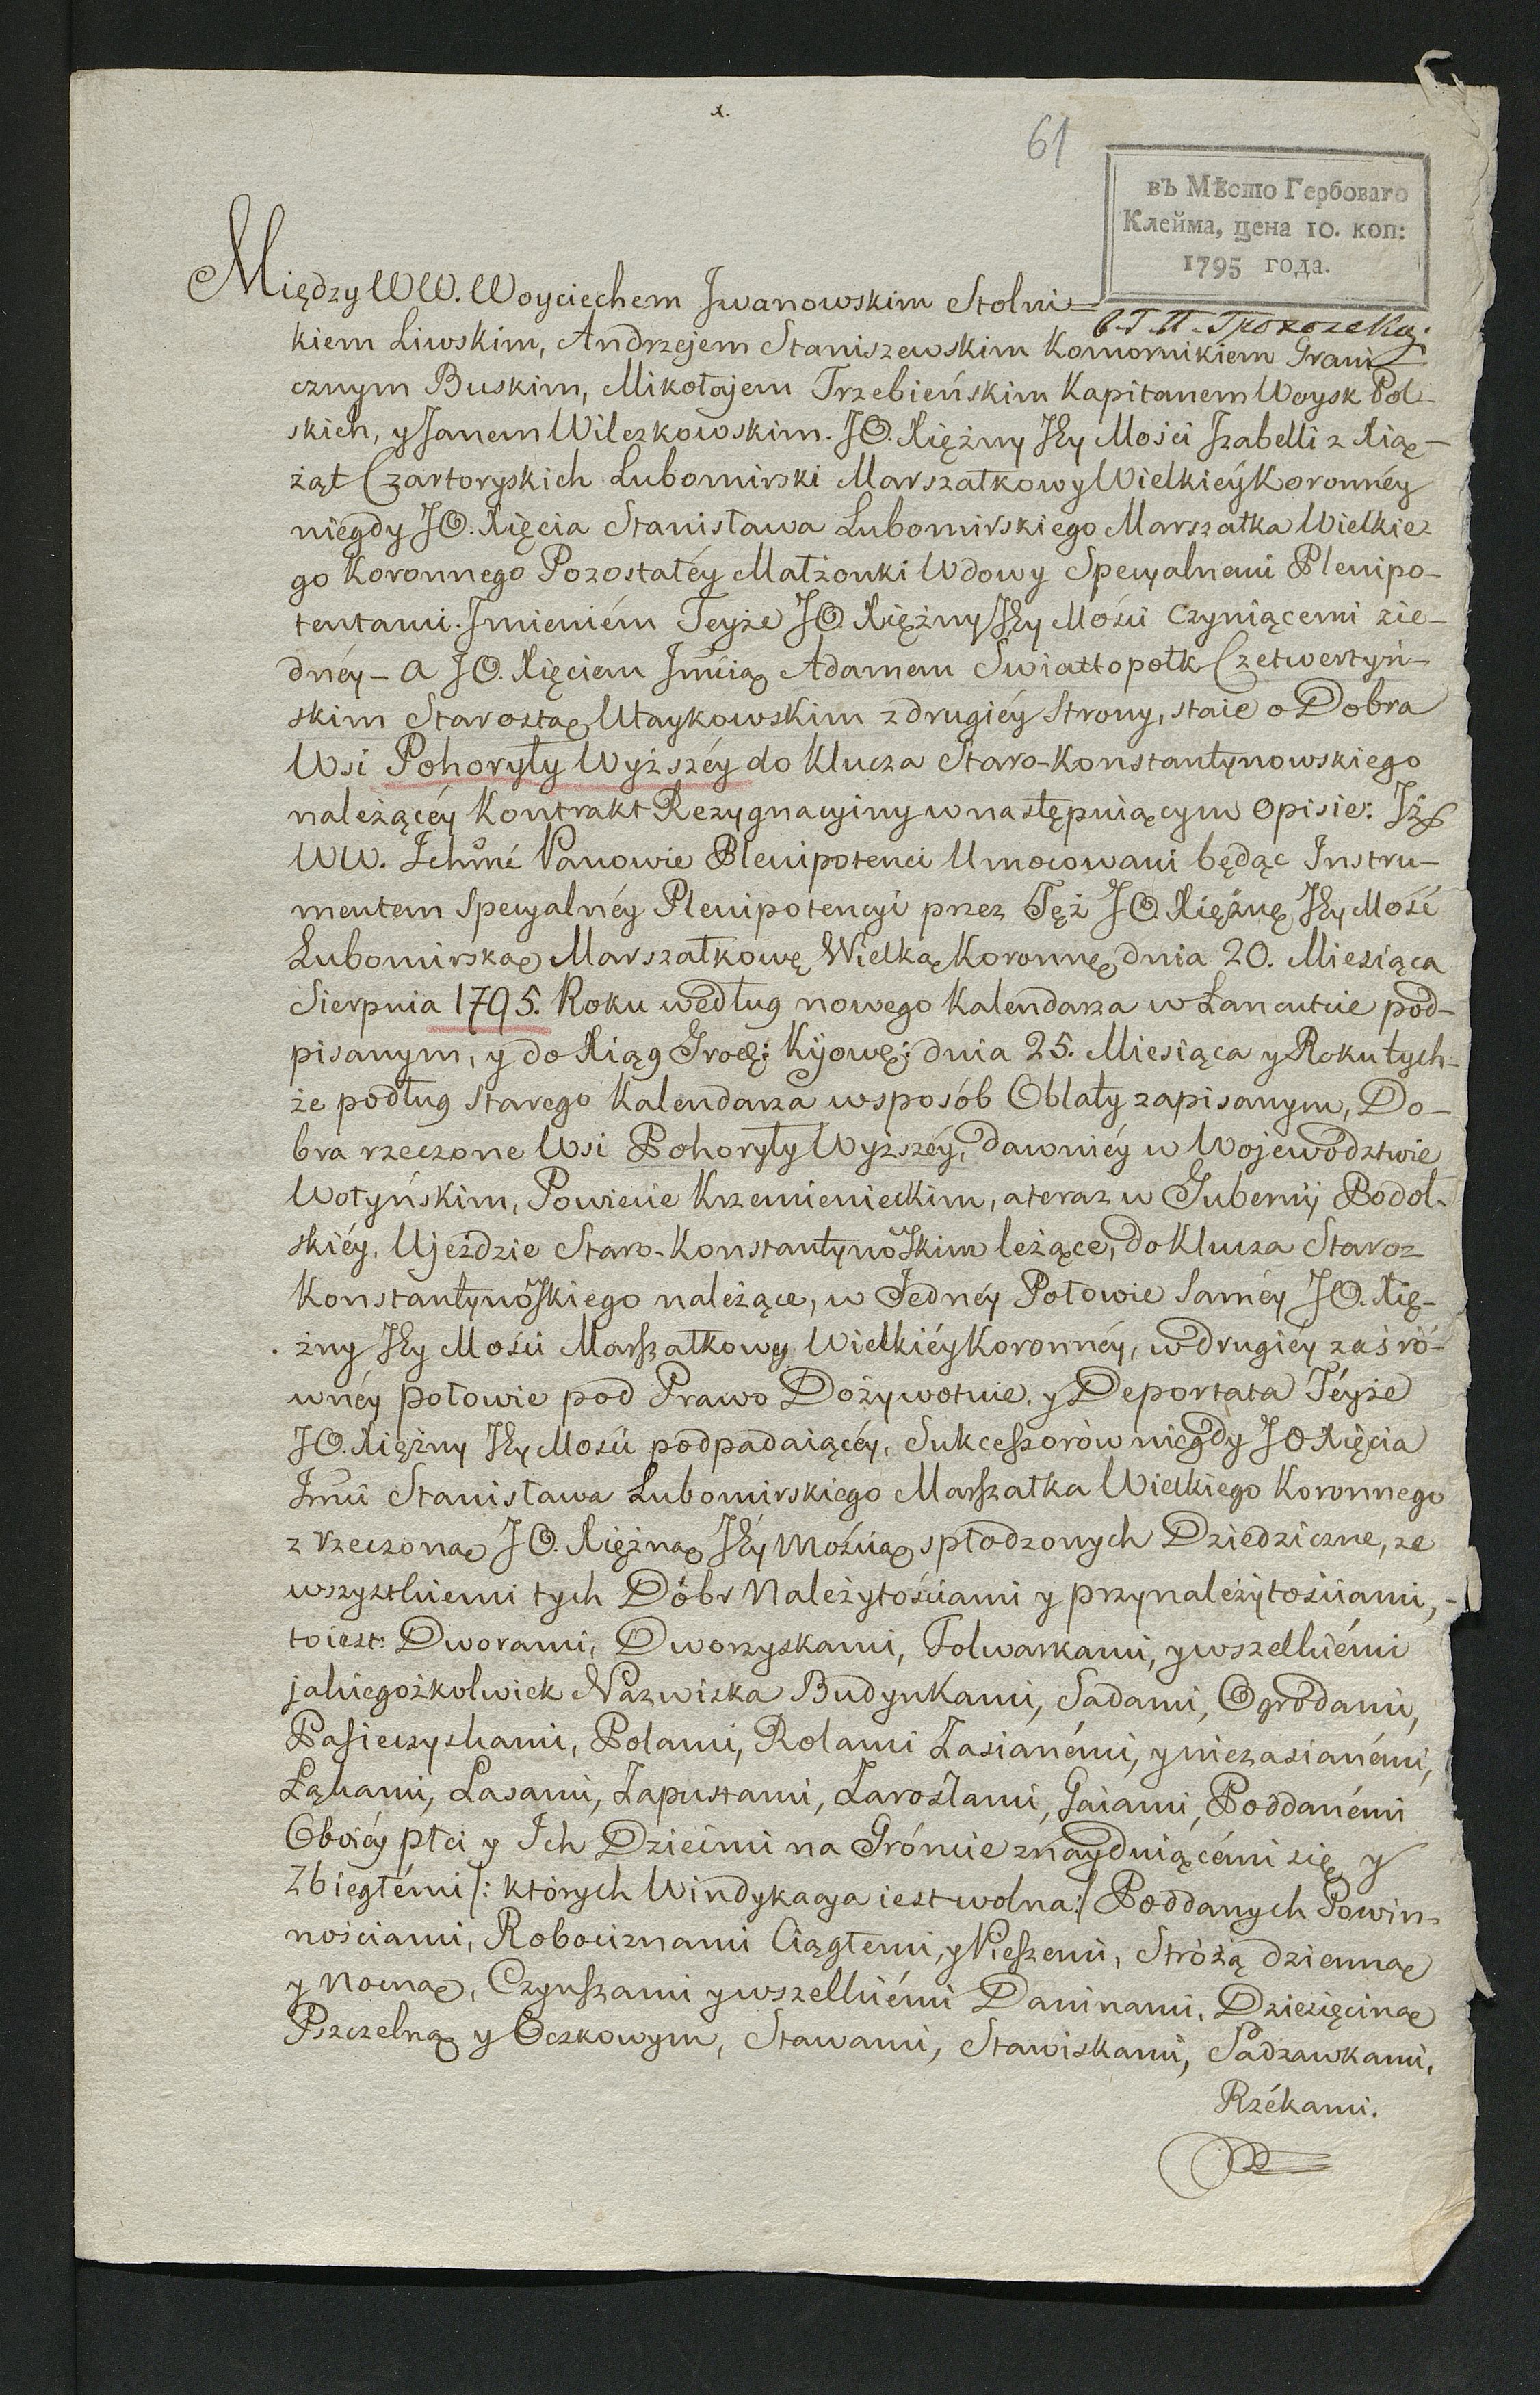 1.
61
въ Мѣсто Гербоваго
Клейма, цена 10. коп:
1795 года.
Między WW. Woyciechem Jwanowskim Stolni=
kiem Liwskim, Andrzejem Staniszewskim Komornikiem Grani
cznym Buskim, Mikołajem Trzebieńskim Kapitanem Woysk Pol-
skich, y Janem Wilczkowskim. JO. Xiężny JEy Mości Jzabelli z Xią-
żąt Czartoryskich Lubomirski Marszałkowy Wielkiéy Koronnéy
niegdy JO. Xięcia Stanisława Lubomirskiego Marszałka Wielkie=
go Koronnego Pozostałéy Małżonki Wdowy Specyalnemi Plenipo-
tentami. Jmieniém Teyże JO. Xiężny JEy Mości czyniącemi zie-
dnéy - a JO. Xięciem Jmcią Adamem Swiattopołk Czetwertyń-
skim Starostą Utaykowskim z drugiéy Strony, staie o Dobra
Wsi Pohoryły Wyższéy do Klucza Staro-Konstantynowskiego
należącéy Kontrakt Rezygnacyiny w następuiącym opisie: Jż
WW. Ichmć Panowie Plenipotenci Umocowani będąc Instru-
mentem Specyalnéy Plenipotencyi przez Tęż JO. Xiężnę JEy Mość
Lubomirską Marszałkowę Wielką Koronnę dnia 20. Miesiąca
Sierpnia 1795. Roku według nowego Kalendarza w Łancutcie pod-
pisanym, y do Xiąg Grodz: Kijows: dnia 25. Miesiąca y Roku tych-
że podług starego Kalendarza w sposób Oblaty zapisanym, Do-
bra rzeczone Wsi Pohoryły Wyższéy, dawniéy w Wojewodztwie
Wołyńskim, Powiecie Krzemienieckim, a teraz w Gubernij Podol-
skiéy, Ujeździe Staro-Konstantynoskim leżące, do Klucza Staro=
Konstantynoskiego należące, w Jednéy Połowie Saméy JO. Xię-
żny JEy Mości Marszałkowy Wielkiéy Koronnéy, w drugiey zaś ró-
wnéy połowie pod Prawo Dożywotnie. y Deportata Téyże
JO. Xiężny JEy Mości podpadaiącéy, Sukcessorów niegdy JO Xięcia
Jmci Stanisława Lubomirskiego Marszałka Wielkiego Koronnego
z rzeczoną JO. Xiężną JEy Mością spłodzonych Dziedziczne, ze
wszystkiemi tych Dóbr Należytościami y przynależytościami,-
toiest: Dworami, Dworzyskami, Folwarkami, y wszelkiémi
jakiegożkolwiek Nazwiska Budynkami, Sadami, Ogrodami,
Pasieczyskami, Polami, Rolami Zasianémi, y niezasianémi,
Łąkami, Lasami, Zapustami, Zaroślami, Gaiami, Poddanémi
Oboiéy płci y Ich Dziećmi na Gróncie znayduiącémi się y
Zbiegłémi /: których Windykacya iest wolna:/ Poddanych Powin-
nościami, Robociznami Ciągłemi, y Pieszemi, Stróżą dzienną
y nocną, Czynszami y wszelkiémi Daninami, Dziesięciną
Pszczelną y Oczkowym, Stawami, Stawiskami, Sadzawkami,
Rzékami.